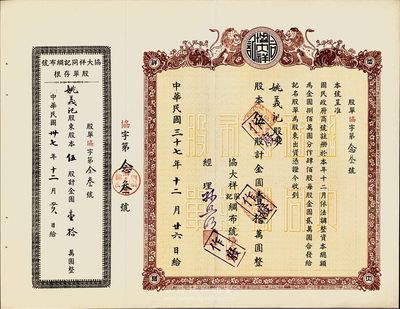 協大祥
股單協字第念叁號
本號呈准
國民政府商號註冊於本年十二月依法調整資本總額
為金圓捌佰萬圓分作肆佰股每股金圓貳萬圓合發給
記名股單為股東出資憑證今收到
姚義記股東
股本伍股計金圓壹拾萬圓整
協大祥同記綢布號
經理
中華民國三十七年十二月廿六日給
作廢
作廢
協字第念叁號
協大祥同記綢布號
股單存根
股單協字第念叁號
姚義記股東股本伍股計金圓壹拾萬圓整
中華民國卅七年十二月 日給